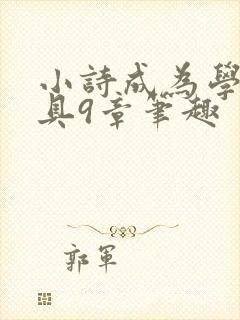 小詩成為學
具9章筆趣
郭軍